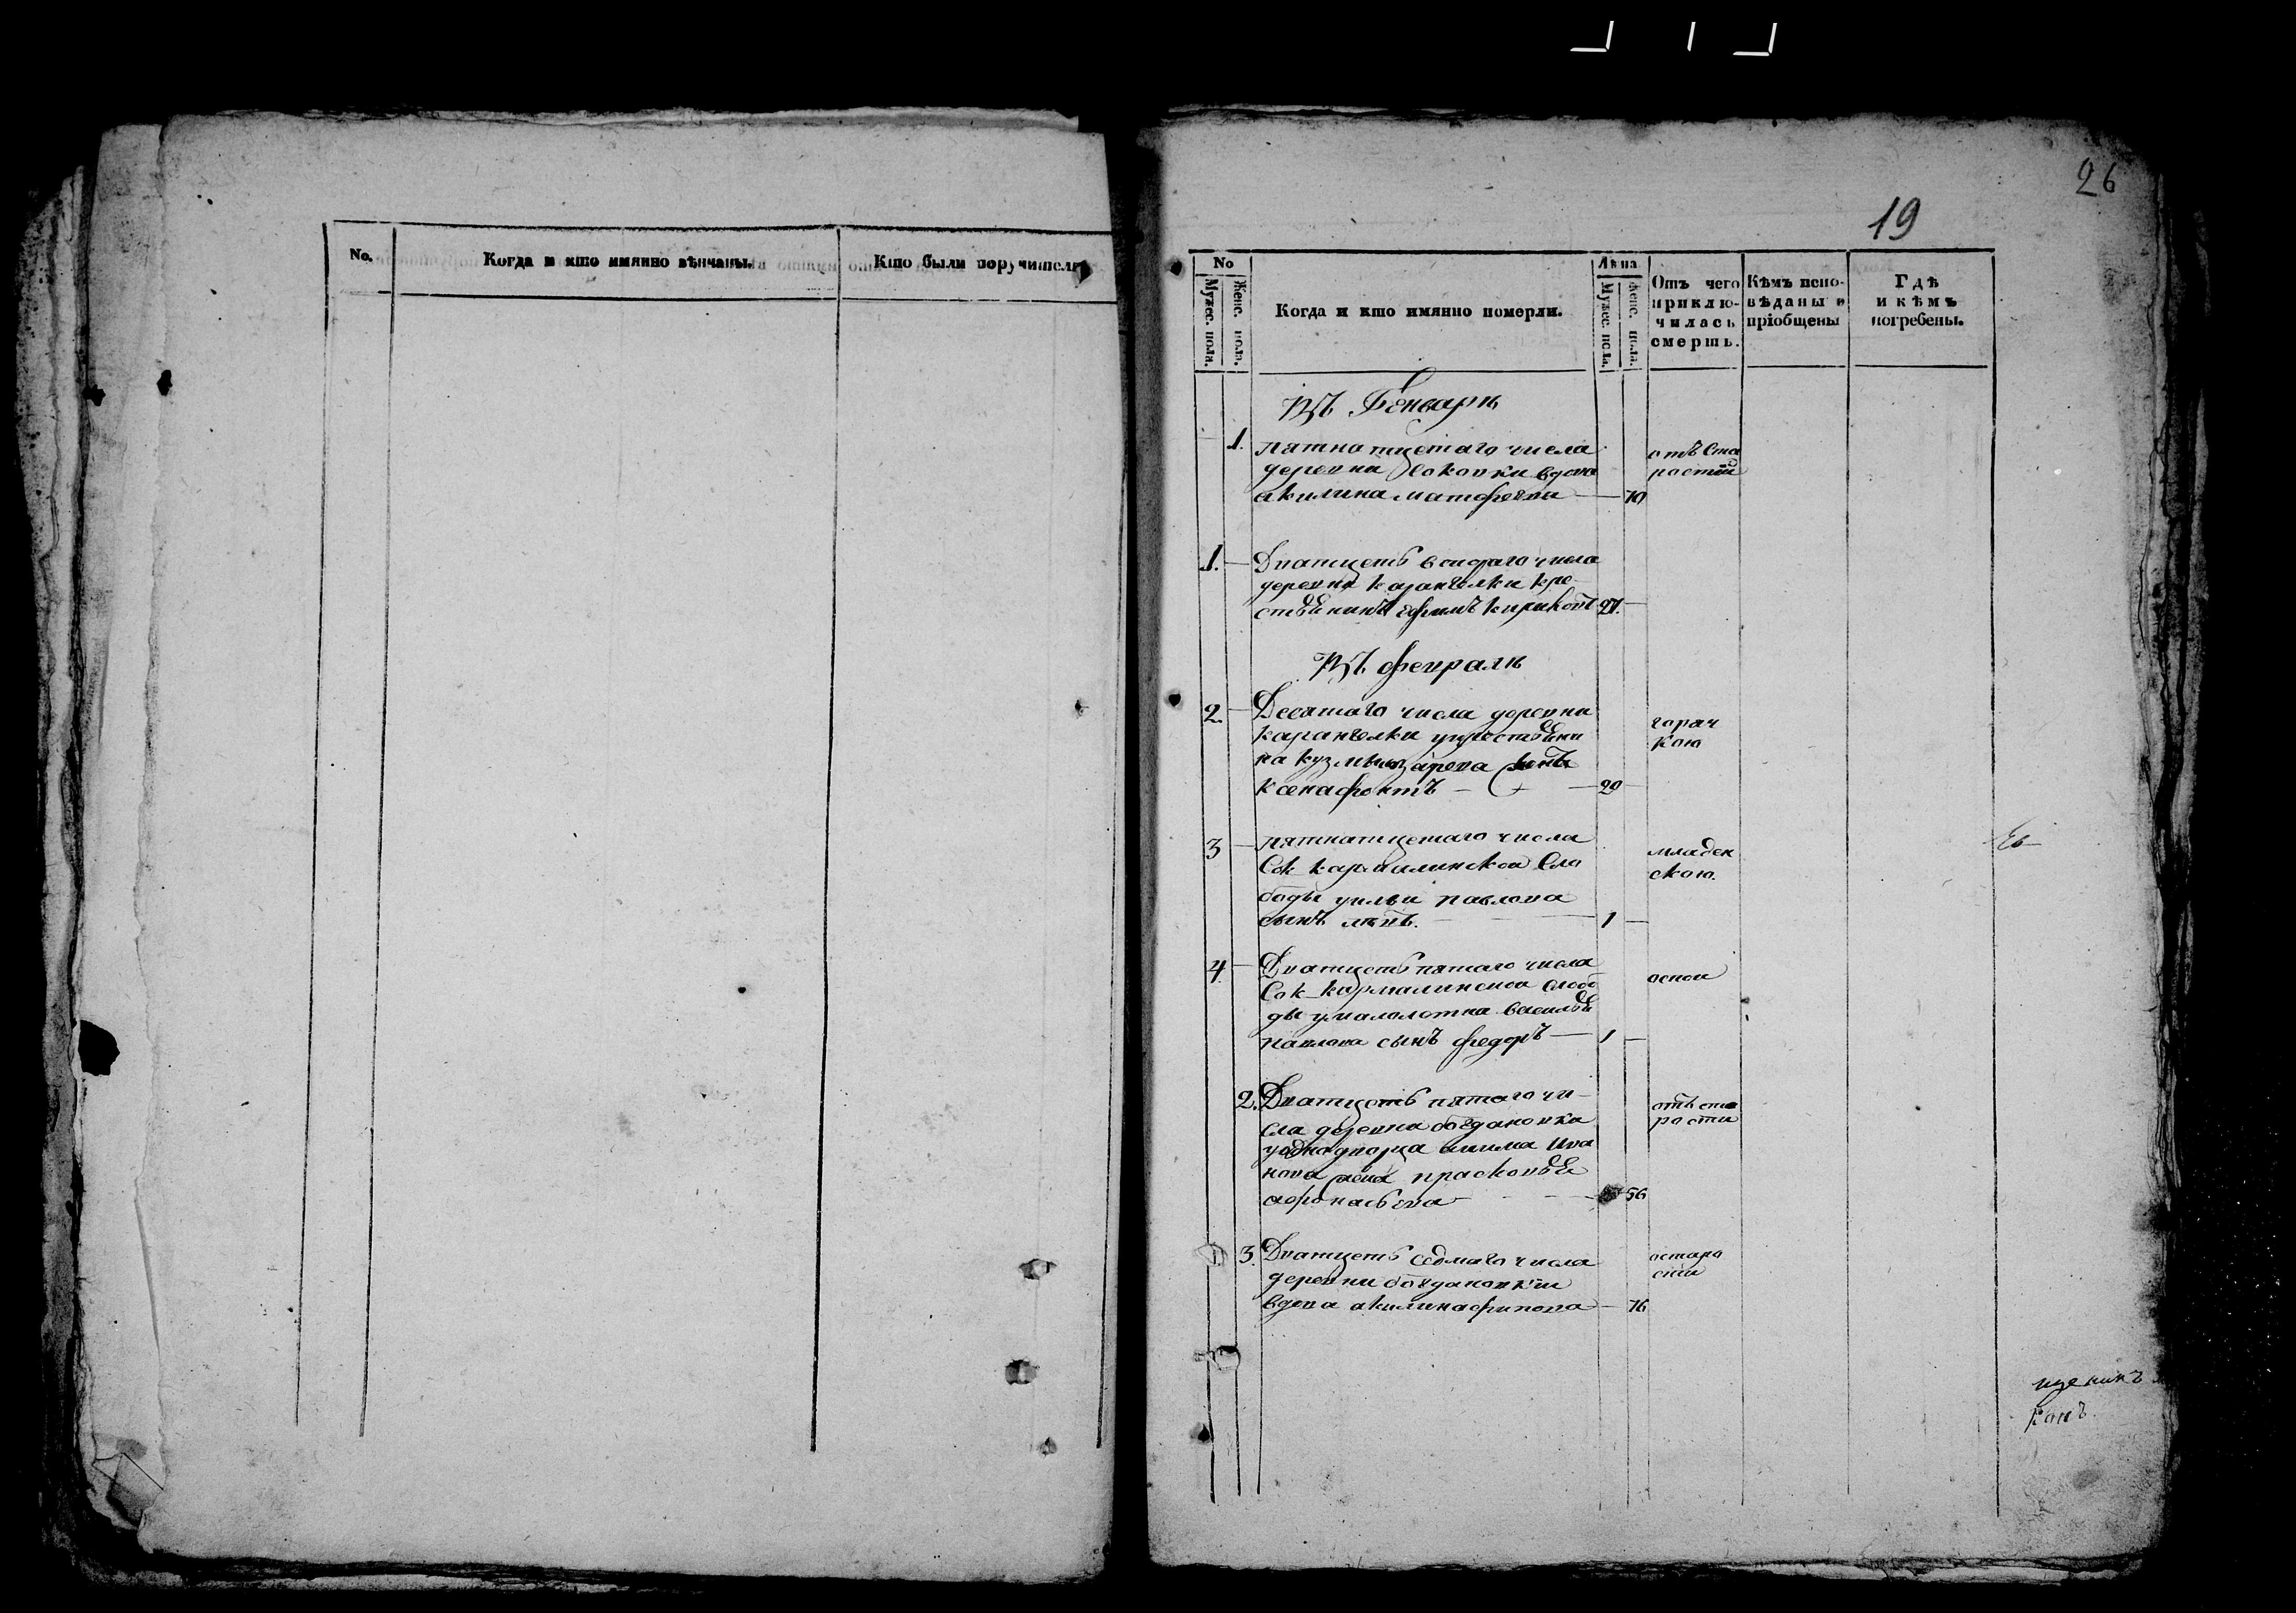 No.
Когда и кто имянно вѣнчаны.
Кто были поручители
26
19
No
Мужес. пола.
Женс. пола.
Когда и кто имянно померли.
Лѣта
Мужес. пола.
Женс. пола.
Отъ чего приклю-
чилась
смерть.
Кѣмъ испо-
вѣданы и
пріобщены
Гдѣ
и кѣмъ
погребены.
Въ Генваре
1. пятнатцетаго числа
деревни вдова
акилина матфеева — 70
отъ ста
рости
1. — Дватцеть втораго числа
деревни каранъелки кре-
стьенинъ ефимъ кириловъ 27. —
Въ феврале
2. — Десятаго числа деревни
каранъелки укрестьени
на кузмы сынъ
ксенафонтъ — 20 —
горяч
кою
3 — пятнатцетаго числа
Сок-кармалинской Сло
боды уильи павлова
сынъ — 1 —
младен
скою.
4. — Дватцеть пятаго числа
Сок-кармалинской слобо
ды умалолетка василья
павлова сынъ федоръ — 1 —
оспой
2. Дватцеть пятаго чи-
сла деревни богдановки
уоднодворца акима ива
нова жена прасковья
афонасьева — 56
отъ ста
рости
3. Дватцеть седмаго числа
деревни богдановки
вдова акилина — 76
остаро
сти